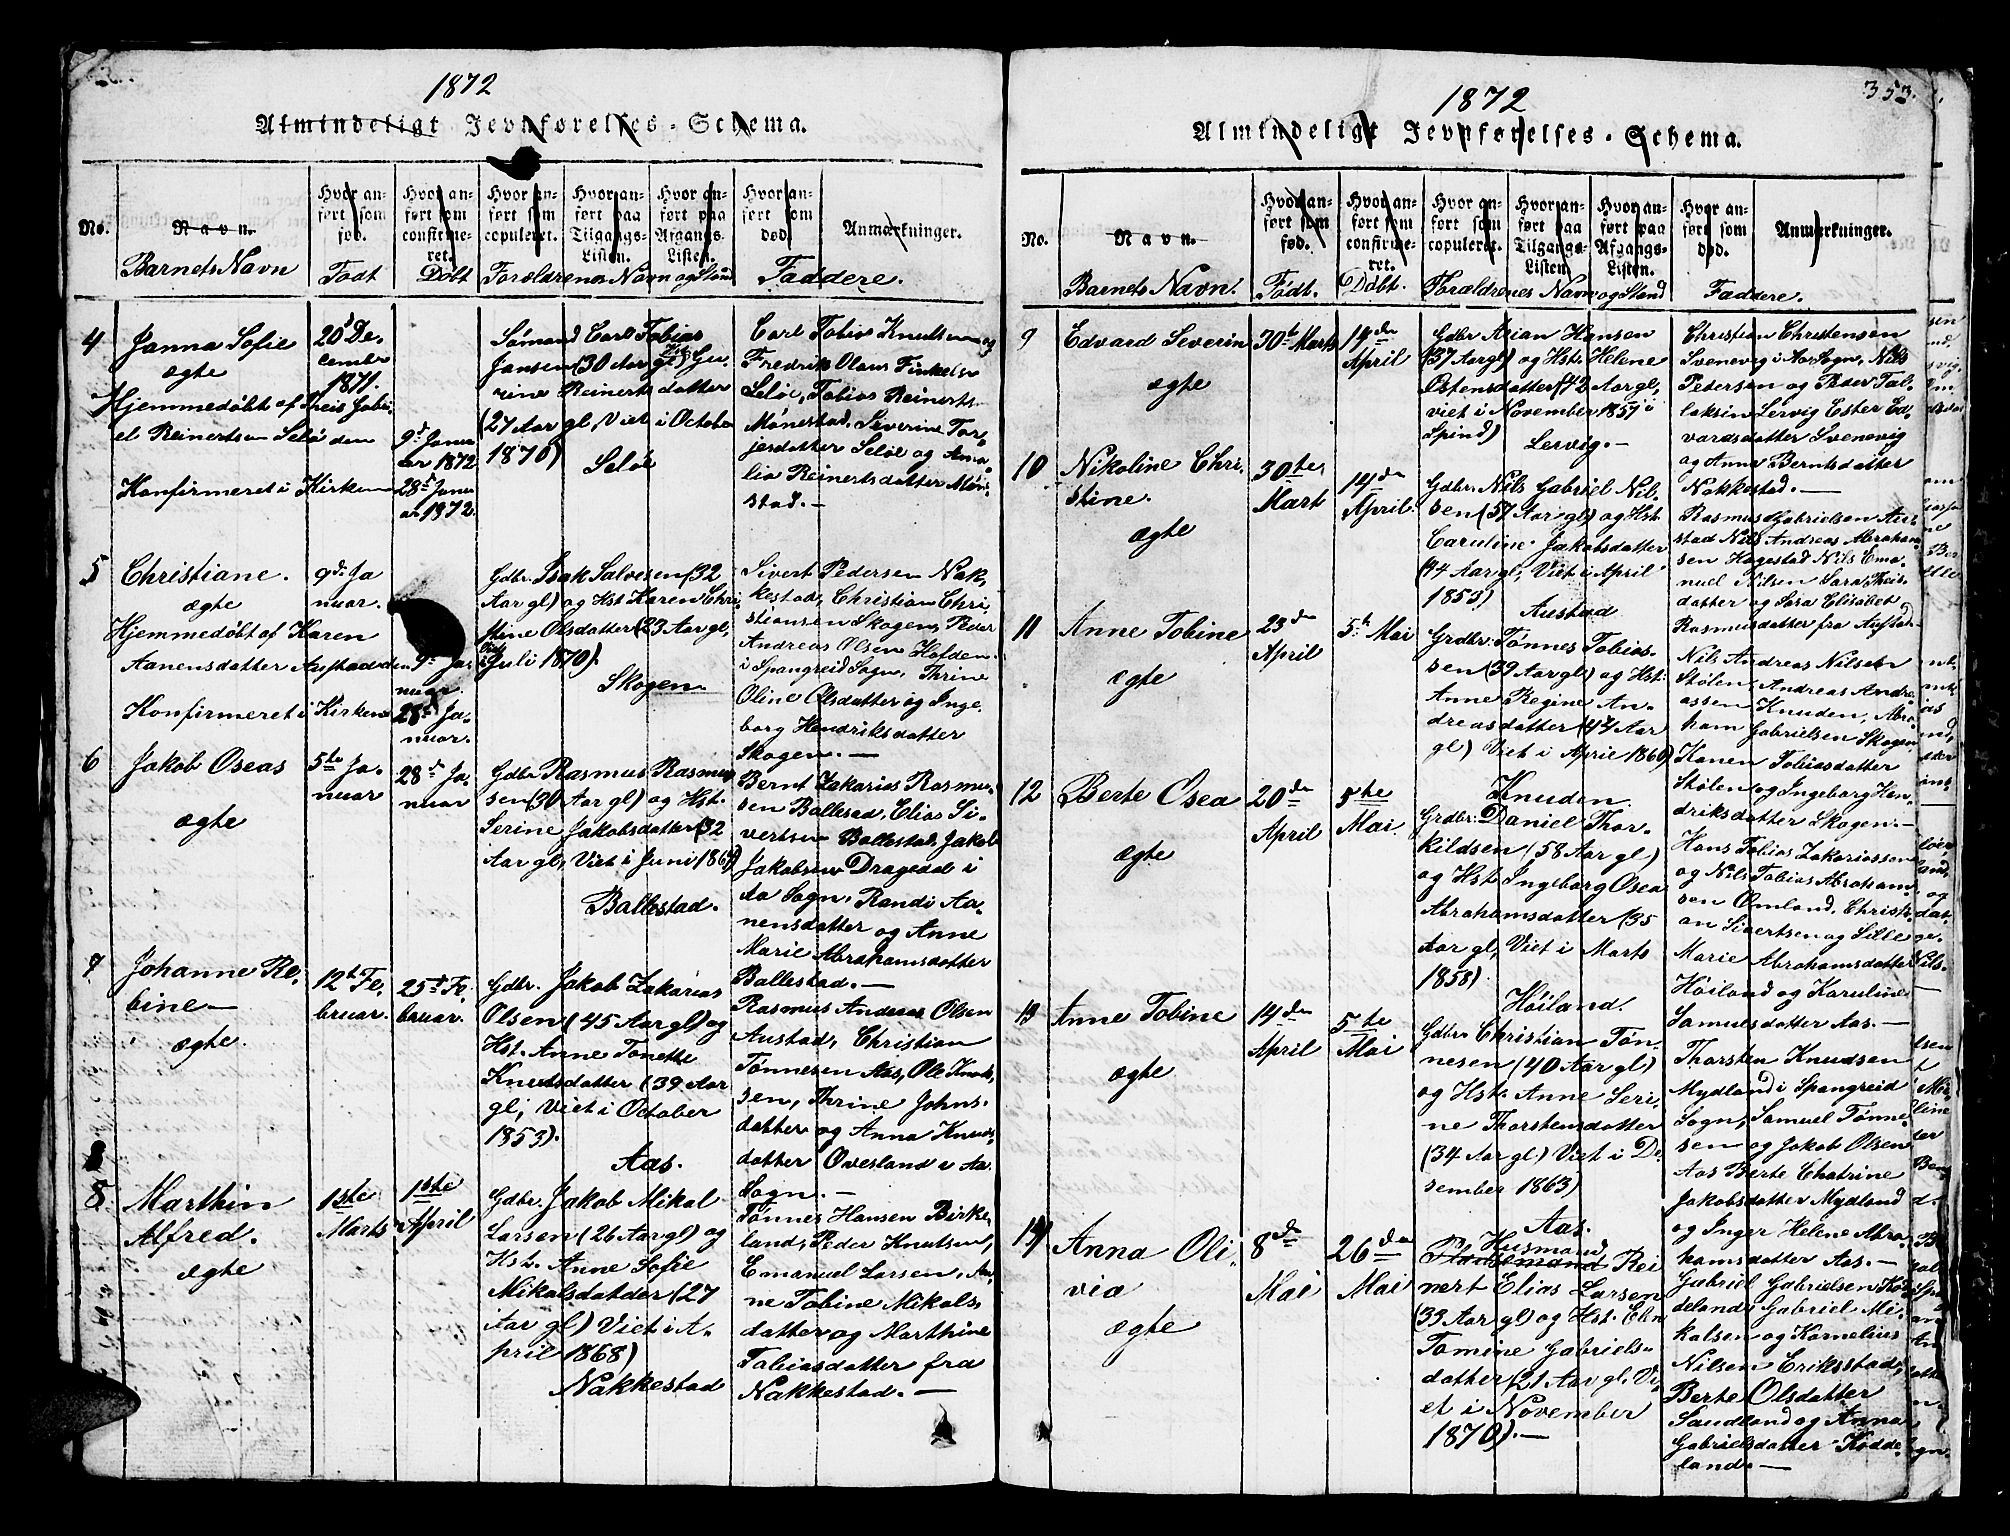 1872
Almindeligt Jevnførelses-Schema.
No.
Navn.
Hvor an-
ført som
fød.
Hvor an-
ført som
confirme-
ret.
Hvor an-
ført som
copuleret.
Hvor an-
ført paa
Tilgangs-
Listen.
Hvor an-
ført paa
Afgangs-
Listen.
Hvor an-
ført som
død.
Anmærkninger.
Barnets Navn
Født
Døbt
Forældrenes Navn og Stand
Faddere.
4
Janna Sofie
ægte
Hjemmedøbt af Theis Gabri-
el Reinertsen Selö den
Konfirmeret i Kirken
20d De-
cember
1871.
9d Janu-
ar 1872
28d Janu-
ar 1872.
Sømand Carl Tobias
Jansen (30 Aar gl) Hst. Gu-
rine Reinertsdatter
(27 Aar gl, Viet i October
1870)
Selöe
Carl Tobias Knutsen og
Fredrik Olaus Finkelsen
Selöe, Tobias Reinerts
Mønestad, Severine Tor-
jersdatter Selöe og Ama-
lia Reinertsdatter Møne-
stad.-
5
Christiane.
ægte
Hjemmedøbt af Karen
Aanensdatter Austad den
Konfirmeret i Kirken
9d Ja
nuar.
9d Ja-
nuar.
28d Ja-
nuar.
Gdbr. Isak Salvesen (32
Aar gl) og Hst Karen Chri-
stine Olsdatter (23 Aar gl,
Viet i Juli 1870).
Skogen
Sivert Pedersen Nak-
kestad, Christian Chri-
stiansen Skogen, Peder
Andreas Olsen Hofden
i Spangreid Sogn, Thrine
Oline Olsdatter og Inge-
borg Hendriksdatter
Skogen.-
6
Jakob Oseas
ægte
5te Ja-
nuar
28d Ja-
nuar
Gdbr Rasmus Rasmus-
sen (30 Aar gl) og Hst.
Serine Jakobsdatter (32
Aar gl, Viet i Juni 1869)
Ballestad.
Bernt Zakarias Rasmus-
sen Ballestad, Elias Si-
vertsen Ballestad, Jakob
Jakobsen Dragedal i
Aa Sogn, Randi Aa-
nensdatter og Anne
Marie Abrahamsdatter
Ballestad.-
7
Johanne Re-
bine-
ægte.
12te Fe-
bruar.
25d Fe-
bruar.
Gdbr. Jakob Zakarias
Olsen (45 Aar gl) og
Hst. Anne Tonette
Knutsdatter (39 Aar
gl, Viet i October
1853).
Aas.
Rasmus Andreas Olsen
Austad, Christian
Tönnesen Aas, Ole Knut-
sen, Thrine Johns-
datter og Anna Knuds-
datter Övesland i Aa
Sogn.-
8.
Marthin
Alfred.
ægte
1ste
Marts
1ste
April
Gdbr. Jakob Mikal
Larsen (26 Aar gl) og
Hst. Anne Sofie
Mikalsdatder (27
Aar gl) Viet i A-
pril 1868)
Nakkestad
Tønnes Hansen Birke-
land, Peder Knutsen,
Emanuel Larsen, An-
ne Tobine Mikals-
datter og Marthine
Tobiasdatter fra
Nakkestad.-
1872
353.
Almindeligt Jevnførelses-Schema.
No.
Navn.
Hvor an-
ført som
fød.
Hvor an-
ført som
confirme-
ret.
Hvor an-
ført som
copuleret.
Hvor an-
ført paa
Tilgangs-
Listen.
Hvor an-
ført paa
Afgangs-
Listen.
Hvor an-
ført som
død.
Anmærkninger.
Barnets Navn.
Født.
Døbt.
Forældrenes Navn og Stand
Faddere.
9
Edvard Severin
ægte
30te Marts
14de
April
Gdbr Arian Hansen
(37 Aar gl) og Hst. Helene
Østensdatter (42 Aar gl,
viet i November 1857 i
Spind)
Lervig.-
Christian Christensen
Svenevig i Aa Sogn, Nils
Pedersen og Peder Tal-
laksen Lervig Ester Ed-
vardsdatter Svenevig
og Anna Berntsdatter
Nakkestad.-
10
Nikoline Chri-
stine.
ægte
30te
Mart
14de
April
Gdbr. Nils Gabriel Nil-
sen (57 Aar gl) og Hst.
Caroline Jakobsdatter
(44 Aar gl, Viet i April
1853)
Austad
Rasmus Gabrielsen Au-
stad Nils Andreas Abraham-
sen Hagestad Nils Ema-
nuel Nilsen Sara Theis-
datter og Sara Elisabet
Rasmusdatter fra Austad.
11
Anne Tobine
ægte
23de
April
5te Mai
Grdbr. Tønnes Tobias-
sen (39 Aar gl) og Hst.
Anne Regine An-
dreasdatter (44 Aar
gl) Viet i April 1860)
Knuden.
Nils Andreas Nilsen
Stølen, Andreas Andre-
assen Knuden, Abra-
ham Gabrielsen Skogen
Karen Tobiasdatter
Stølen og Ingeborg Hen-
driksdatter Skogen.-
12
Berte Osea
ægte
20de
April
5te
Mai.
Grdbr. Daniel Thor-
kildsen (58 Aar gl)
og Hst. Ingeborg Osea
Abrahamsdatter (35
Aar gl, Viet i Marts
1858)
Höiland.
Hans Tobias Zakariassen
og Nils Tobias Abraham-
sen Omland, Christi-
an Sivertsen og Sille
Marie Abrahamsdatter
Höiland og Karuline
Samuelsdatter Aas.-
13
Anne Tobine
ægte
14de
April
5te
Mai
Gdbr Christian Tøn-
nesen (40 Aar gl)
og Hst. Anne Seri-
ne Thorstensdatter
(34 Aar gl.) Viet i De-
sember 1863)
Aas.
Thorsten Knudsen
Mydland i Spangreid
Sogn, Samuel Tønne-
sen og Jakob Olsen
Aas Berte Chatrine
Jakobsdatter Mydland
og Inger Helene Abra-
hamsdatter Aas.-
14
Anna Oli-
via
ægte
8de
Mai
26de
Mai
Husmand
Rei
nert Elias Larsen
(33 Aar gl) og Hst. Elen
Tomine Gabriels-
datter (21 Aar gl. Vi-
et i November
1870).-
Gabriel Gabrielsen Kod-
deland, Gabriel Mi-
kalsen og Kornelius
Nilsen Eriksstad,
Berte Olsdatter
Saudland og Anna
Gabrielsdatter Kodde-
land.-